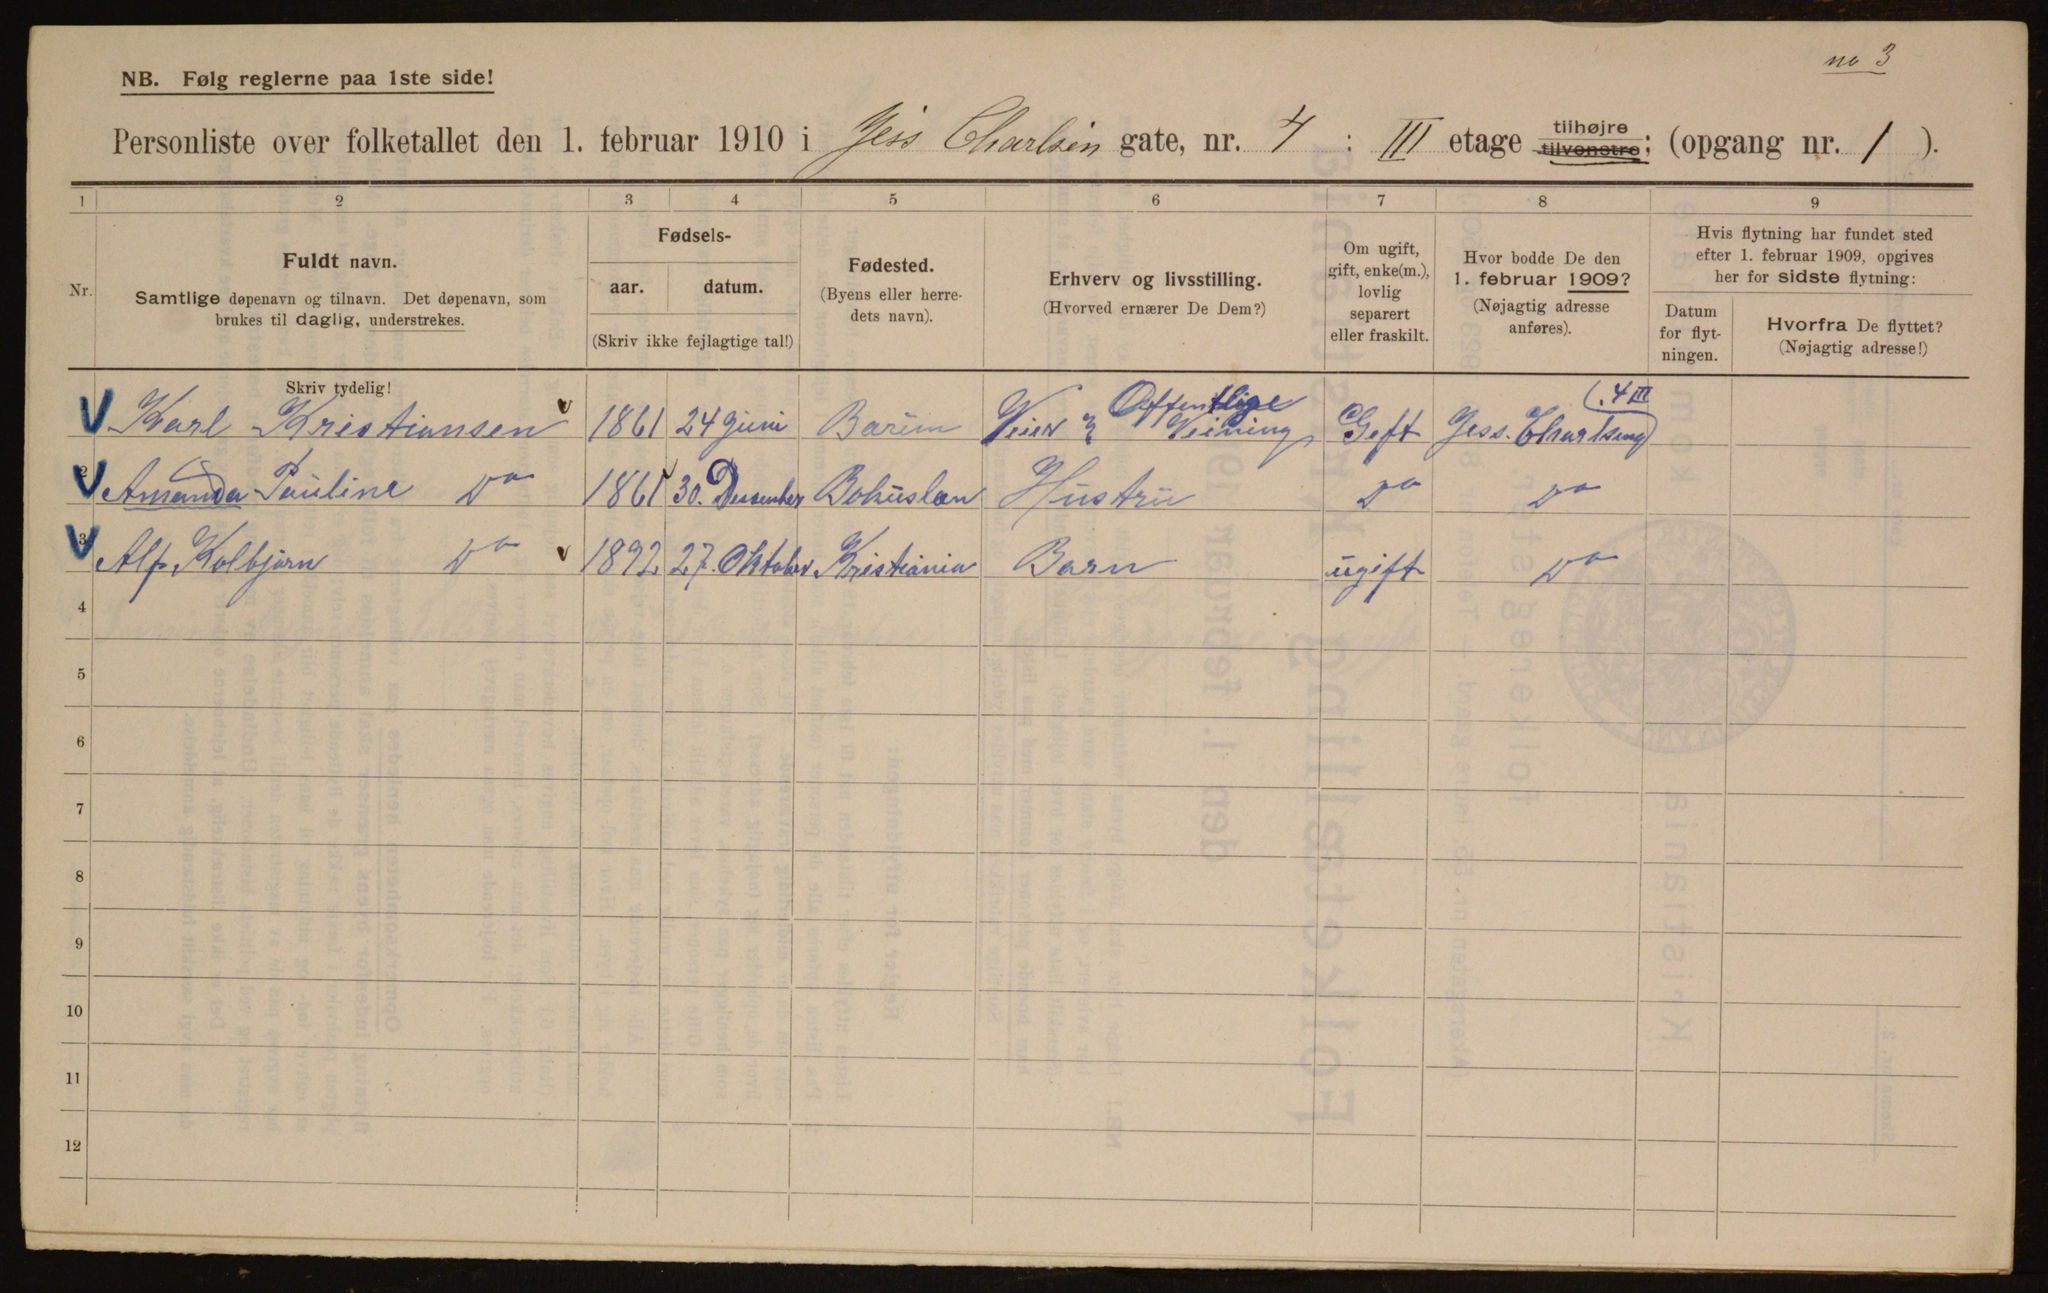 no 3
NB. Følg reglerne paa 1ste side!
Personliste over folketallet den 1. februar 1910 i Jess Charlsen gate, nr. 4 : III etage tilhøjre tilvenstre; (opgang nr. 1 ).
1 2 3 4 5 6 7 8 9
Nr.
Fuldt navn.
Samtlige døpenavn og tilnavn. Det døpenavn, som
brukes til daglig, understrekes.
Skriv tydelig!
Fødsels-
aar. datum.
(Skriv ikke fejlagtige tal!)
Fødested.
(Byens eller herre-
dets navn).
Erhverv og livsstilling.
(Hvorved ernærer De Dem?)
Om ugift,
gift, enke(m.),
lovlig
separert
eller fraskilt.
Hvor bodde De den
1. februar 1909?
(Nøjagtig adresse
anføres).
Hvis flytning har fundet sted
efter 1. februar 1909, opgives
her for sidste flytning:
Datum
for flyt-
ningen.
Hvorfra De flyttet?
(Nøjagtig adresse!)
Offentlige .4 III
V Karl Kristiansen v 1861 24 Juni Barüm Veier Veining Geft Jess. Charlseng
V 2 Amanda Pauline Do 1861 30. Desember Bohuslen Hustrü Do Do
V 3 Alf Kolbjørn Do v 1892 27. Oktober Kristiania Barn ugift Do
4
5
6
7
8
9
10
11
12